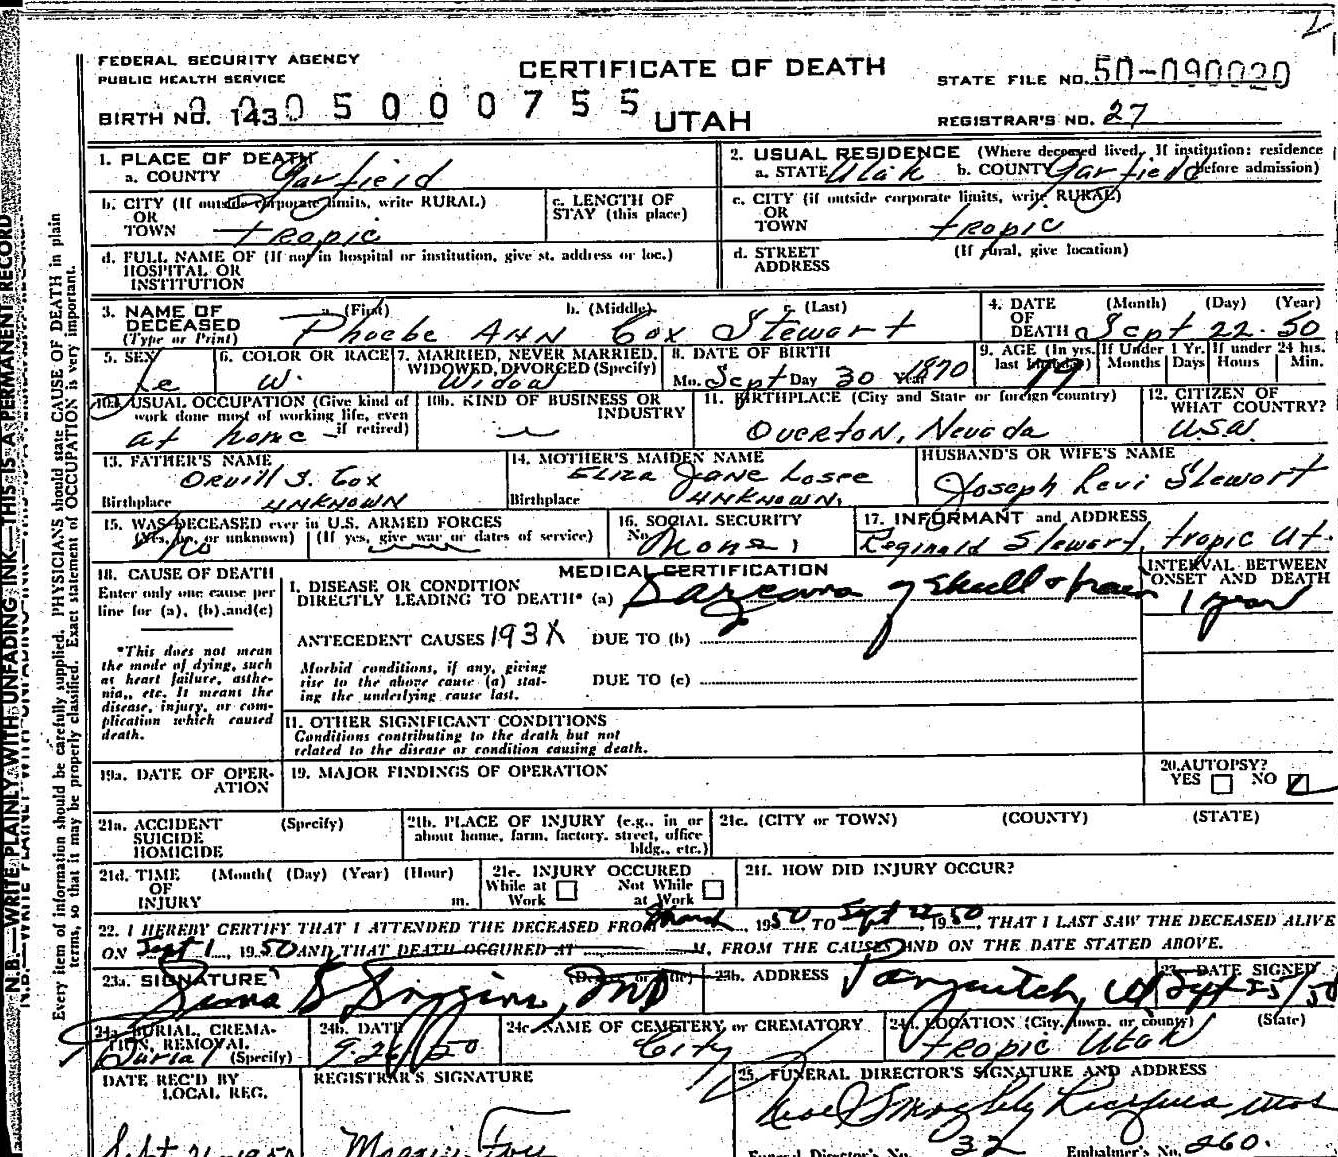 FEDERAL SECURITY AGENCY
PUBLIC HEALTH SERVICE
CERTIFICATE OF DEATH
STATE FILE NO. 50-090020
BIRTH NO. 143 0005000755
UTAH
REGISTRAR'S NO. 27
1. PLACE OF DEATH
a. COUNTY Garfield
2. USUAL RESIDENCE (Where deceased lived. If institution: residence before admission)
a. STATE Utah b. COUNTY Garfield
b. CITY (If outside corporate limits, write RURAL)
OR
TOWN tropic
c. LENGTH OF
STAY (this place)
c. CITY (if outside corporate limits, write RURAL)
OR
TOWN tropic
d. FULL NAME OF (If not in hospital or institution, give st. address or loc.)
HOSPITAL OR
INSTITUTION
d. STREET (If rural, give location)
ADDRESS
3. NAME OF
DECEASED
(Type or Print)
a. (First) b. (Middle) c. (Last)
Phoebe Ann Cox Stewart
4. DATE (Month) (Day) (Year)
OF
DEATH Sept 22-50
5. SEX
Fe
6. COLOR OR RACE
W.
7. MARRIED, NEVER MARRIED,
WIDOWED, DIVORCED (Specify)
Widow
8. DATE OF BIRTH
Mo. Sept Day 30 Year 1870
9. AGE (In yrs. last birthday) If Under 1 Yr. If under 24 hrs.
79 Months Days Hours Min.
10a. USUAL OCCUPATION (Give kind of
work done most of working life, even
if retired)
at home
10b. KIND OF BUSINESS OR
INDUSTRY
11. BIRTHPLACE (City and State or foreign country)
Overton, Nevada
12. CITIZEN OF
WHAT COUNTRY?
U.S.A.
13. FATHER'S NAME
Orvill S. Cox
Birthplace UNKNOWN
14. MOTHER'S MAIDEN NAME
Eliza Jane Losee
Birthplace UNKNOWN
HUSBAND'S OR WIFE'S NAME
Joseph Levi Stewart
15. WAS DECEASED ever in U.S. ARMED FORCES
(Yes, no, or unknown) (If yes, give war or dates of service)
No
16. SOCIAL SECURITY
No. None
17. INFORMANT and ADDRESS
Reginald Stewart, tropic Ut.
18. CAUSE OF DEATH
Enter only one cause per
line for (a), (b), and (c)
*This does not mean
the mode of dying, such
as heart failure, asthe-
nia, etc. It means the
disease, injury, or com-
plication which caused
death.
MEDICAL CERTIFICATION
INTERVAL BETWEEN
ONSET AND DEATH
I. DISEASE OR CONDITION
DIRECTLY LEADING TO DEATH* (a) Sarcoma of Skull & brain 1 year
ANTECEDENT CAUSES 193X DUE TO (b)
Morbid conditions, if any, giving
rise to the above cause (a) stat-
ing the underlying cause last.
DUE TO (c)
11. OTHER SIGNIFICANT CONDITIONS
Conditions contributing to the death but not
related to the disease or condition causing death.
19a. DATE OF OPER-
ATION
19. MAJOR FINDINGS OF OPERATION
20. AUTOPSY?
YES NO
21a. ACCIDENT (Specify)
SUICIDE
HOMICIDE
21b. PLACE OF INJURY (e.g., in or
about home, farm, factory, street, office
bldg., etc.)
21c. (CITY or TOWN) (COUNTY) (STATE)
21d. TIME (Month( (Day) (Year) (Hour)
OF
INJURY m.
21e. INJURY OCCURED
While at Work Not While at Work
21f. HOW DID INJURY OCCUR?
22. I HEREBY CERTIFY THAT I ATTENDED THE DECEASED FROM March, 1950, TO Sept 22, 1950, THAT I LAST SAW THE DECEASED ALIVE
ON Sept 1, 1950 AND THAT DEATH OCCURED AT M, FROM THE CAUSES AND ON THE DATE STATED ABOVE.
23a. SIGNATURE (Degree or title)
MD
23b. ADDRESS
Panguitch, Ut
23c. DATE SIGNED
Sept 25/50
24a. BURIAL, CREMA-
TION, REMOVAL
Burial (Specify)
24b. DATE
9-26/50
24c. NAME OF CEMETERY or CREMATORY
City
24d. LOCATION (City, town, or county) (State)
tropic Utah
DATE REC'D BY
LOCAL REG.
REGISTRAR'S SIGNATURE
25. FUNERAL DIRECTOR'S SIGNATURE AND ADDRESS
Funeral Director's No. 32 Embalmer's No. 260.
N.B.—WRITE PLAINLY WITH UNFADING INK—THIS IS A PERMANENT RECORD
Every item of information should be carefully supplied. PHYSICIANS should state CAUSE OF DEATH in plain
terms, so that it may be properly classified. Exact statement of OCCUPATION is very important.